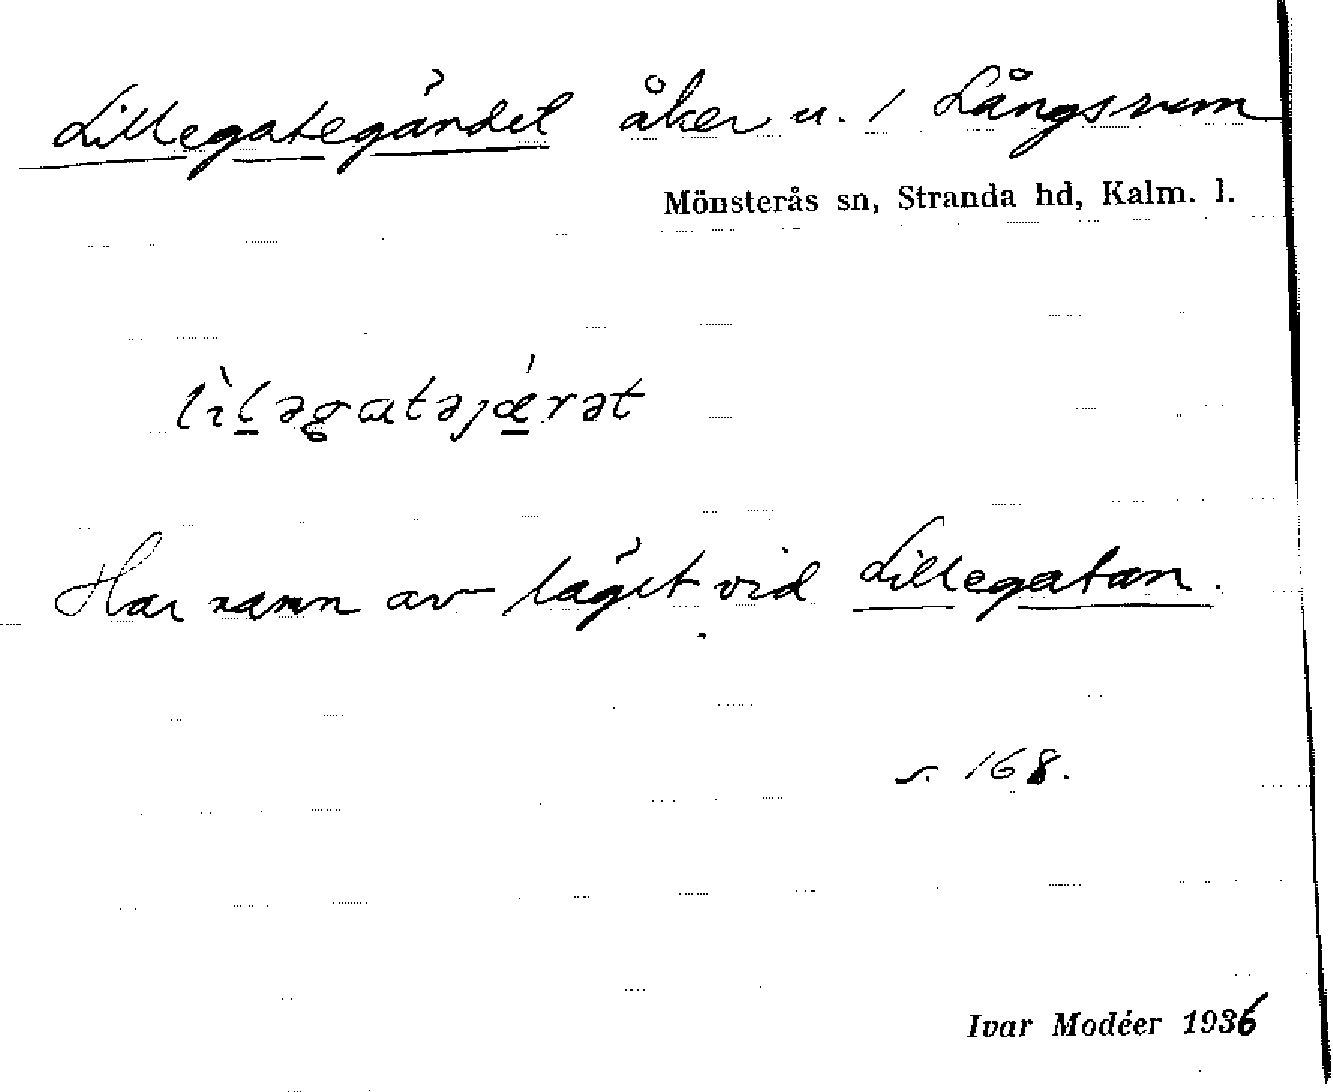 Lillegategärdet åker u. 1 Långsrum
Mönsterås sn, Stranda hd, Kalm. l.
lìləgatəjǽrət
Har namn av läget vid Lillegatan.
s. 168.
Ivar Modéer 1936